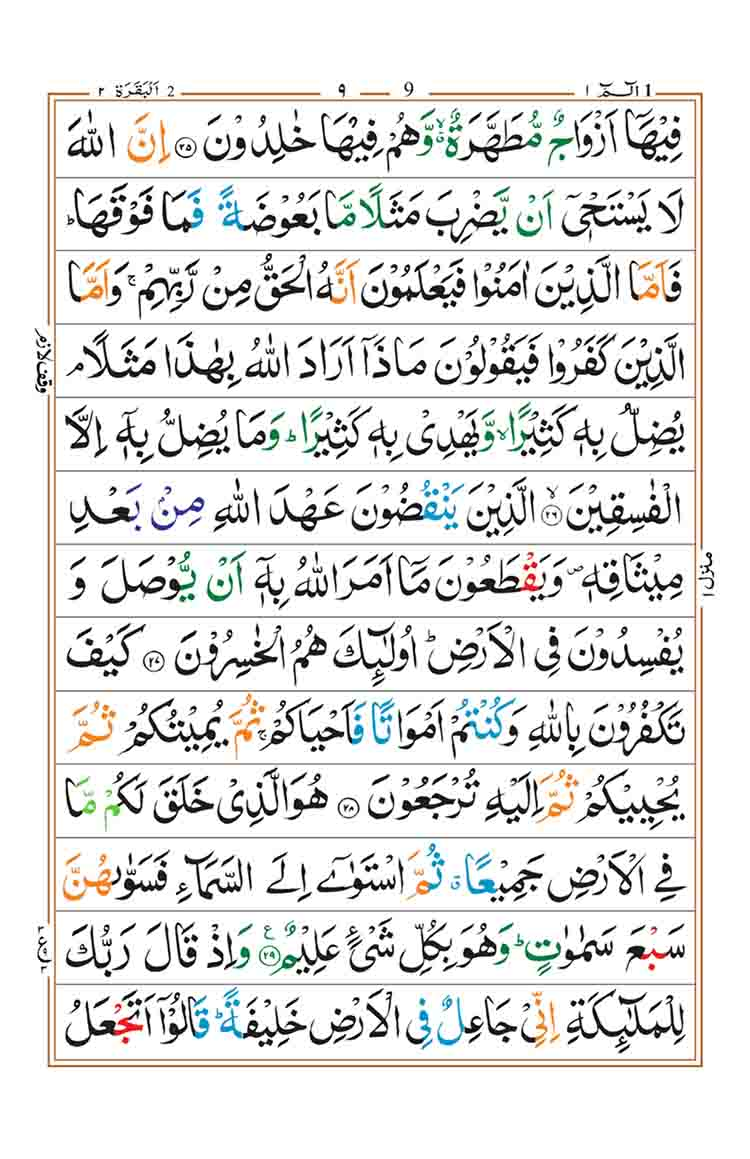 الٓمّٓ ١ 1 9 ٩ 2 اَلْبَقَرَة ٢
فِيْهَاۤ اَزْوَاجٌ مُّطَهَّرَةٌ ۙۗ وَّهُمْ فِيْهَا خٰلِدُوْنَ ﴿۲۵﴾ اِنَّ اللّٰهَ
لَا يَسْتَحْيٖۤ اَنْ يَّضْرِبَ مَثَلًا مَّا بَعُوْضَةً فَمَا فَوْقَهَا ؕ
فَاَمَّا الَّذِيْنَ اٰمَنُوْا فَيَعْلَمُوْنَ اَنَّهُ الْحَقُّ مِنْ رَّبِّهِمْ ۚ وَاَمَّا
الَّذِيْنَ كَفَرُوْا فَيَقُوْلُوْنَ مَاذَاۤ اَرَادَ اللّٰهُ بِهٰذَا مَثَلًا ۘ
وقف لازم
يُضِلُّ بِهٖ كَثِيْرًا ۙ وَّيَهْدِىْ بِهٖ كَثِيْرًا ؕ وَمَا يُضِلُّ بِهٖۤ اِلَّا
الْفٰسِقِيْنَ ۙ﴿۲۶﴾ الَّذِيْنَ يَنْقُضُوْنَ عَهْدَ اللّٰهِ مِنْۢ بَعْدِ
مِيْثَاقِهٖ ۪ وَيَقْطَعُوْنَ مَاۤ اَمَرَ اللّٰهُ بِهٖۤ اَنْ يُّوْصَلَ وَ
منزل ١
يُفْسِدُوْنَ فِى الْاَرْضِ ؕ اُولٰٓئِكَ هُمُ الْخٰسِرُوْنَ ﴿۲۷﴾ كَيْفَ
تَكْفُرُوْنَ بِاللّٰهِ وَكُنْتُمْ اَمْوَاتًا فَاَحْيَاكُمْ ۚ ثُمَّ يُمِيْتُكُمْ ثُمَّ
يُحْيِيْكُمْ ثُمَّ اِلَيْهِ تُرْجَعُوْنَ ﴿۲۸﴾ هُوَ الَّذِىْ خَلَقَ لَكُمْ مَّا
فِى الْاَرْضِ جَمِيْعًا ۗ ثُمَّ اسْتَوٰۤى اِلَى السَّمَآءِ فَسَوّٰىهُنَّ
سَبْعَ سَمٰوٰتٍ ؕ وَهُوَ بِكُلِّ شَىْءٍ عَلِيْمٌ ﴿۲۹﴾ ع وَاِذْ قَالَ رَبُّكَ
لِلْمَلٰٓئِكَةِ اِنِّىْ جَاعِلٌ فِى الْاَرْضِ خَلِيْفَةً ؕ قَالُوْۤا اَتَجْعَلُ